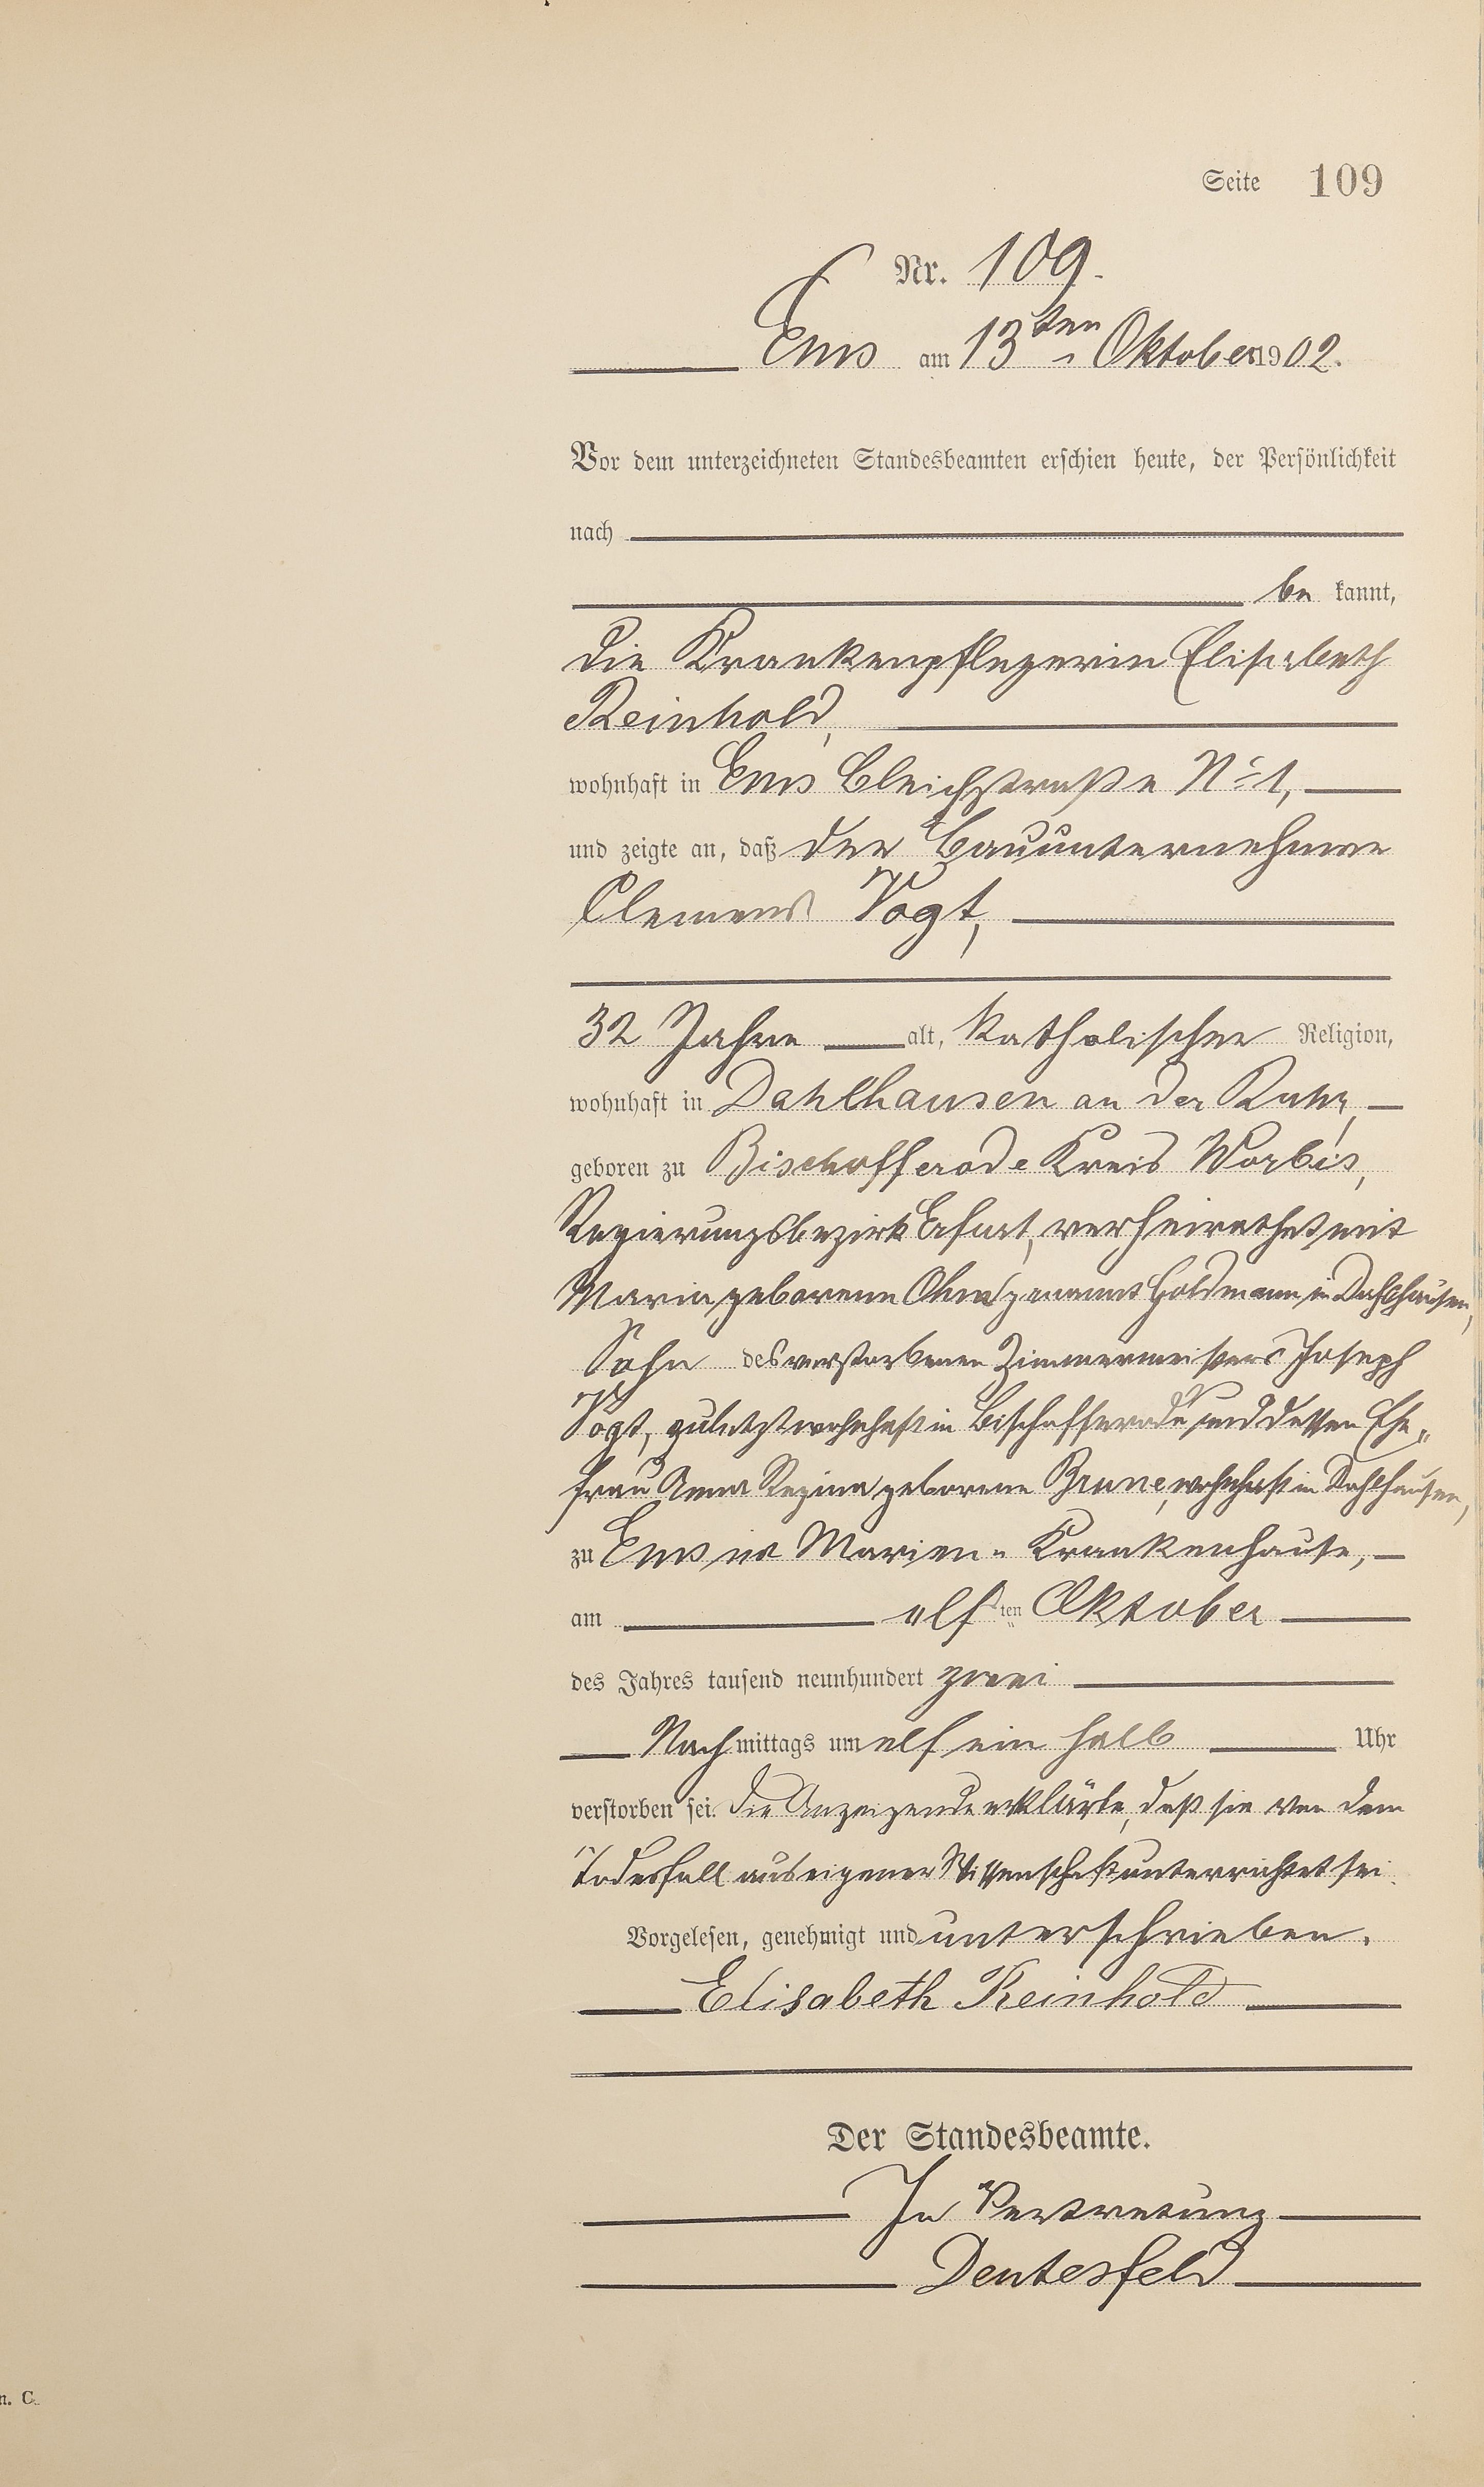 Seite 109
Nr. 109.
Ems am 13ten Oktober 1902.
Vor dem unterzeichneten Standesbeamten erschien heute, der Persönlichkeit
nach
be kannt,
die Krankenpflegerin Elisabeth
Reinhold,
wohnhaft in Ems Bleichstraße No 1,
und zeigte an, daß der Bauunternehmer
Clemens Vogt,
32 Jahre alt, katholischer Religion,
wohnhaft in Dahlhausen an der Ruhr,
geboren zu Bischofferode Kreis Worbis,
Regierungsbezirk Erfurt, verheirathet mit
Maria geborene genannt Goldmann in Dahlhausen,
Sohn des verstorbenen Zimmermeisters Joseph
Vogt, zuletzt wohnhaft in Bischofferode und dessen Ehe„
frau Anna Regina geborene Brune, wohnhaft in Dahlhausen,
zu Ems im Marien- Krankenhause,
am elf ten Oktober
des Jahres tausend neunhundert zwei
Nach mittags um elf ein halb Uhr
verstorben sei. Die Anzeigende erklärte, daß sie von dem
Todesfall aus eigener Wissenschaft unterrichtet sei.
Vorgelesen, genehmigt und unterschrieben.
Elisabeth Reinhold
Der Standesbeamte.
In Vertretung
Deutesfeld
n. C.